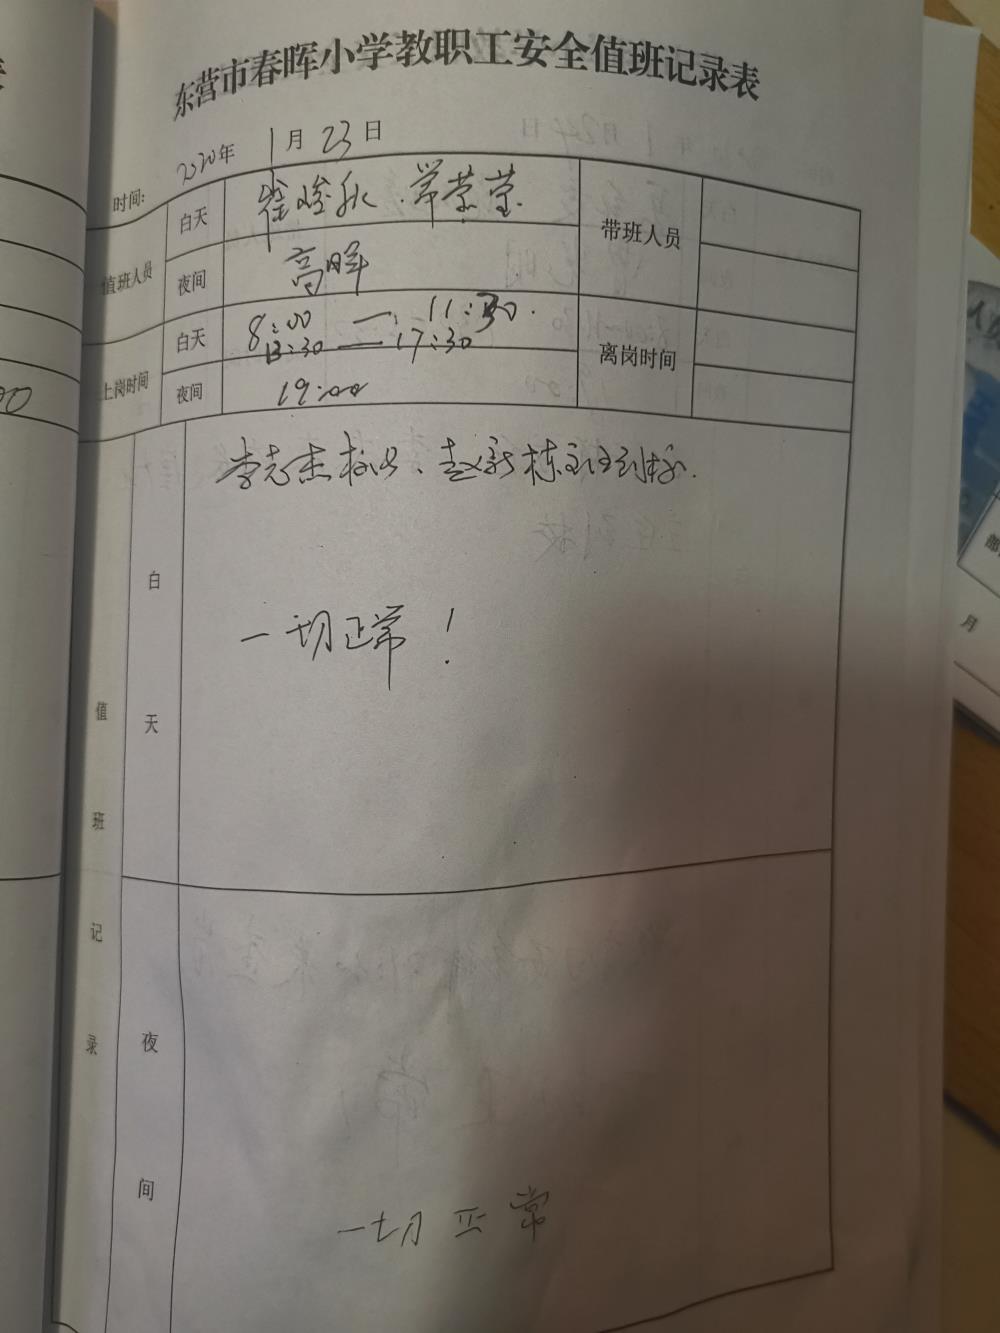 东营市春晖小学教职工安全值班记录表
时间: 2020年 1月 23日
值班人员 白天 徐峻秋 常荣莹 带班人员
夜间 高晖
上岗时间 白天 8:00 — 11:30. 离岗时间
13:30 — 17:30
夜间 19:00
值班记录
白天
李志杰校长、赵新栋主任到校.
一切正常!
夜间
一切正常
月